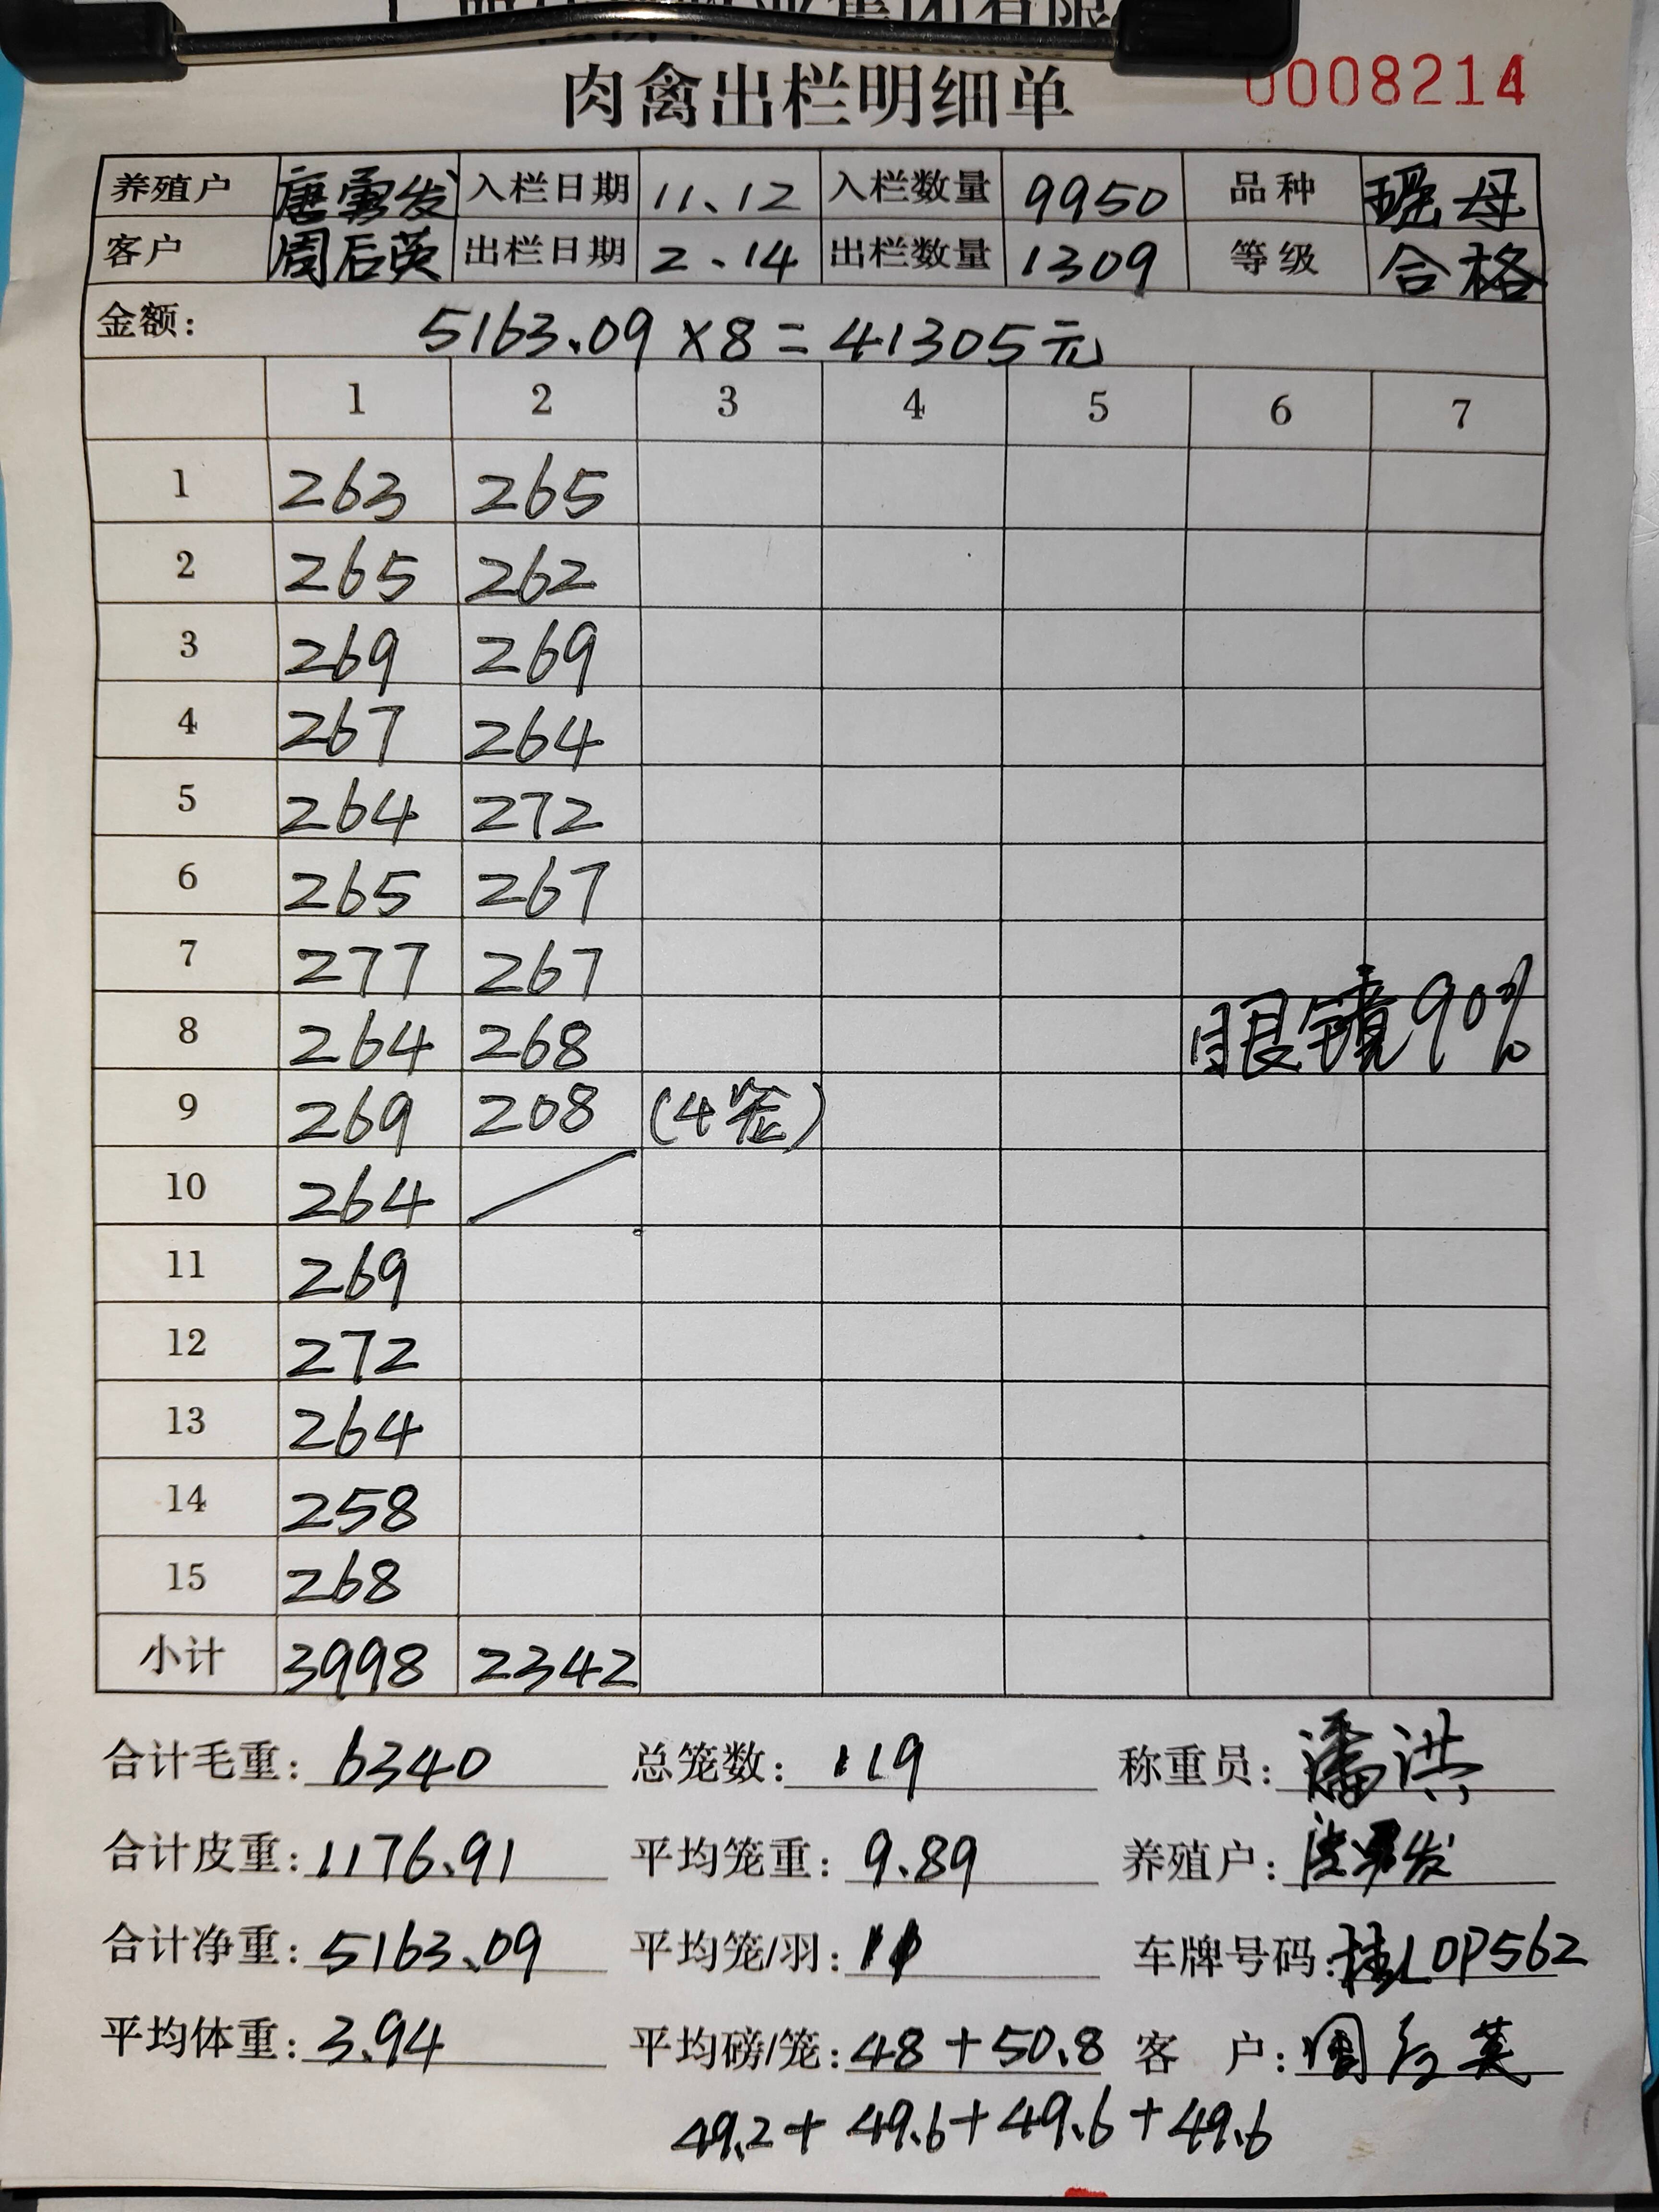 集团有限
肉禽出栏明细单 0008214
养殖户 唐勇发 入栏日期 11.12 入栏数量 9950 品种 瑶母
客户 周后英 出栏日期 2.14 出栏数量 1309 等级 合格
金额: 5163.09×8=41305元
1 2 3 4 5 6 7
1 263 265
2 265 262
3 269 269
4 267 264
5 264 272
6 265 267
7 277 267
8 264 268 眼镜90%
9 269 208 (4笼)
10 264 /
11 269
12 272
13 264
14 258
15 268
小计 3998 2342
合计毛重: 6340 总笼数: 119 称重员: 潘洪
合计皮重: 1176.91 平均笼重: 9.89 养殖户: 唐勇发
合计净重: 5163.09 平均笼/羽: 11 车牌号码: 桂L0P562
平均体重: 3.94 平均磅/笼: 48+50.8 客 户: 周后英
49.2+49.6+49.6+49.6